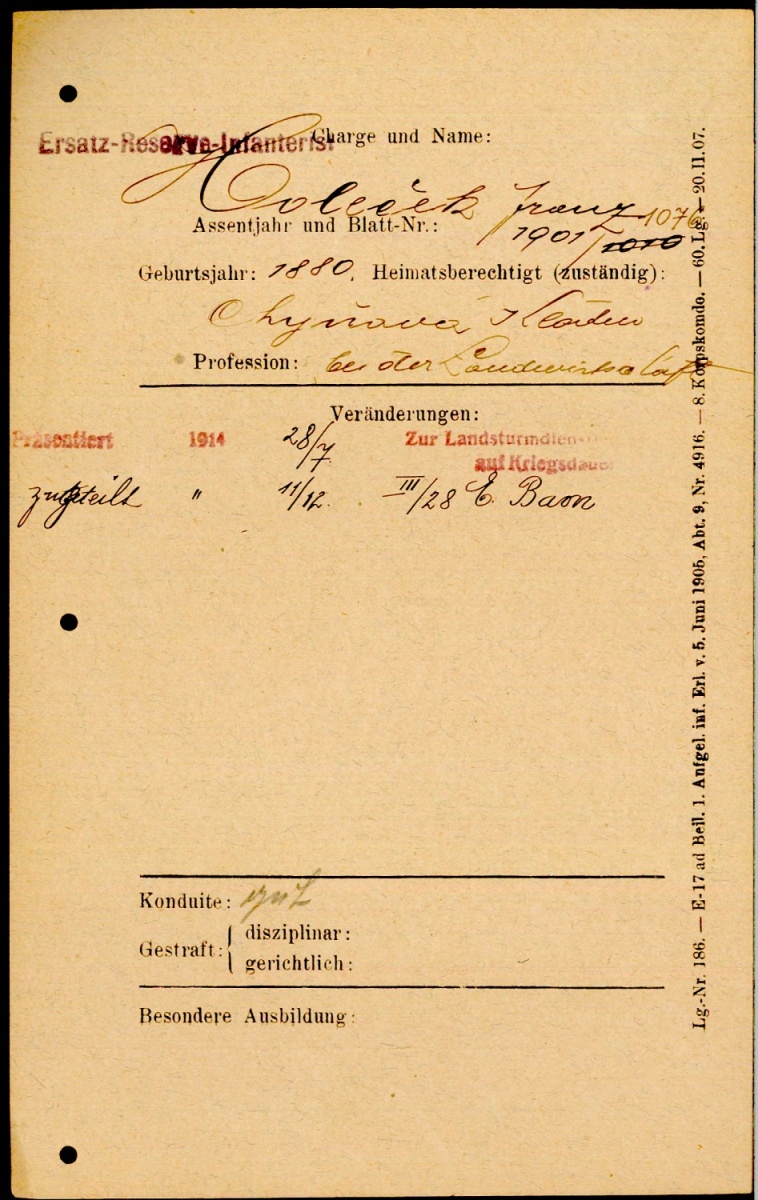 Ersatz-Reserve-Infanterist Charge und Name:
Holeček Franz
Assentjahr und Blatt-Nr.: 1901/1010 1076
Geburtsjahr: 1880. Heimatsberechtigt (zuständig):
Chyňava Kladno
Profession: bei der Landwirtschaft
Veränderungen:
Präsentiert 1914 28/7 Zur Landsturmdien
auf Kriegsdauer
zugeteilt " 11/12. III/28 E. Baon
Konduite: gut
Gestraft: disziplinar:
gerichtlich:
Besondere Ausbildung:
Lg.-Nr. 186. — E-17 ad Beil. 1. Anfgel. inf. Erl. v. 5. Juni 1905, Abt. 9, Nr. 4916. — 8. Korpskomdo. — 60. Lg. — 20. II. 07.